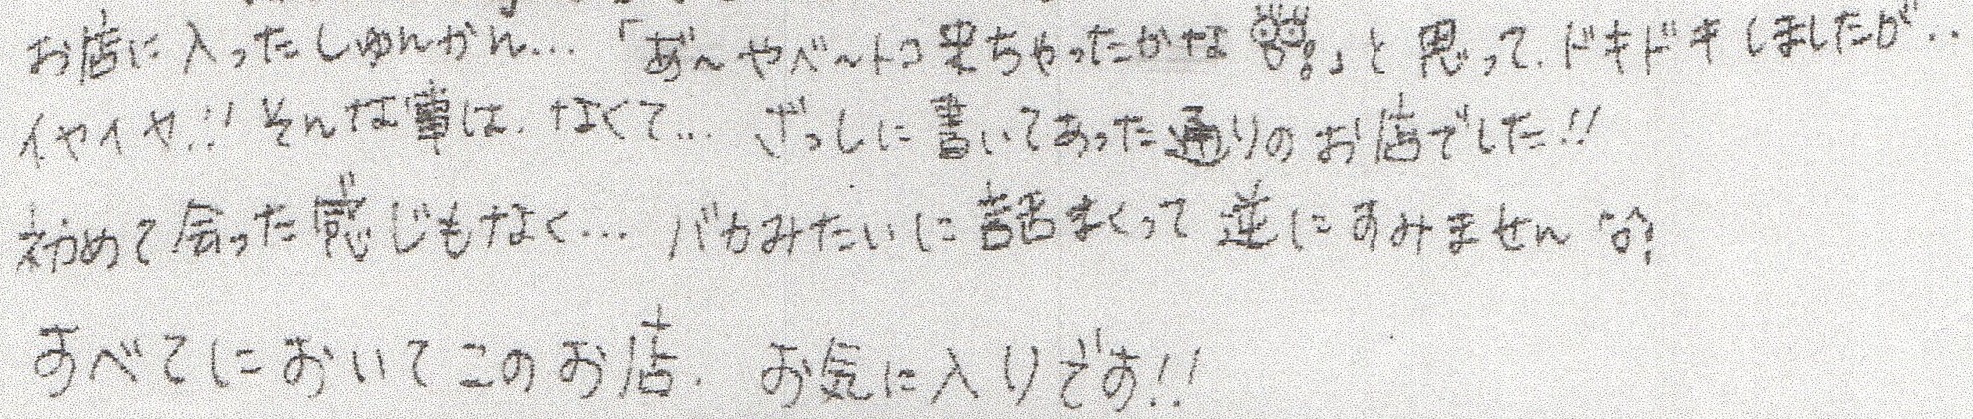 お店に入ったしゅんかん…「あ゛～やべ～トコ来ちゃったかな」と思って、ドキドキしましたが‥
イヤイヤ!! そんな事は、なくて… ざっしに書いてあった通りのお店でした!!
初めて会った感じもなく… バカみたいに話まくって逆にすみません
すべてにおいてこのお店、お気に入りです!!